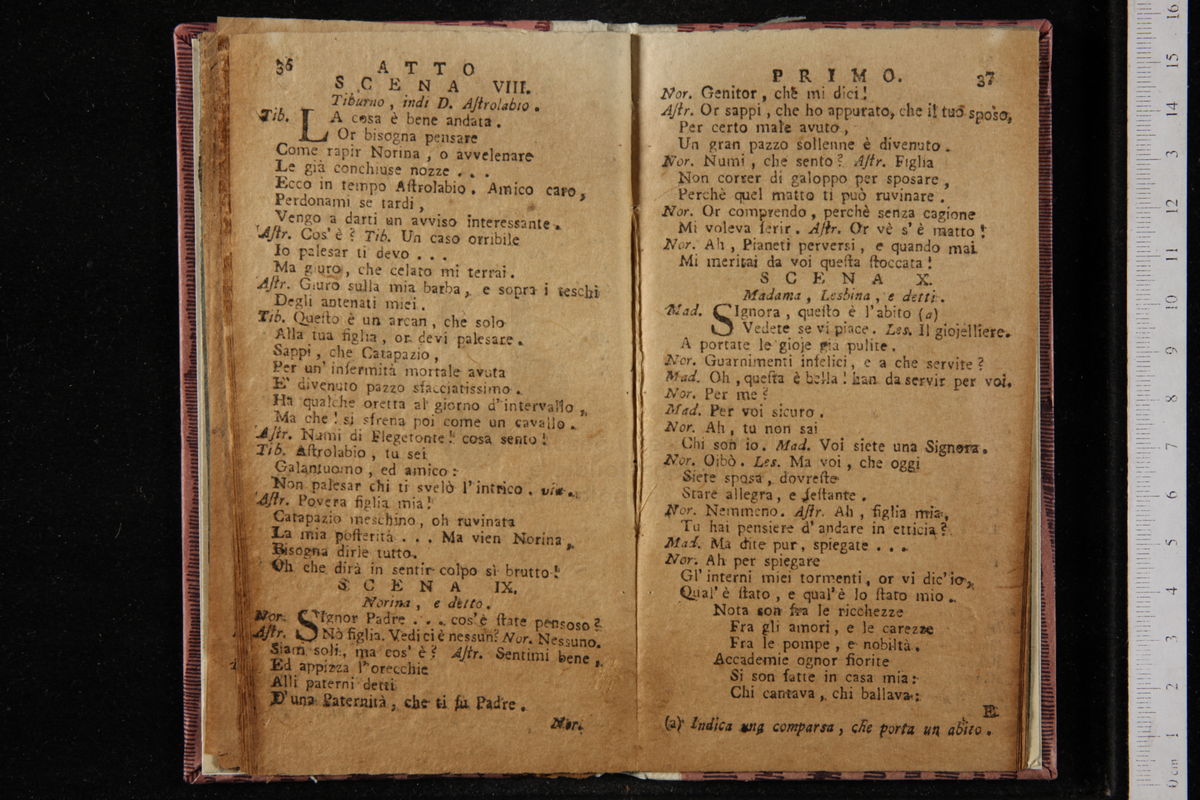 36
ATTO
SCENA VIII.
Tiburno, indi D. Aſtrolabio.
Tib. LA cosa è bene andata.
Or bisogna pensare
Come rapir Norina, o avvelenare
Le già conchiuse nozze . . .
Ecco in tempo Aſtrolabio. Amico caro,
Perdonami se tardi,
Vengo a darti un avviso interessante.
Aſtr. Cos' è? Tib. Un caso orribile
Io palesar ti devo . . .
Ma giuro, che celato mi terrai.
Aſtr. Giuro sulla mia barba, e sopra i teschi
Degli antenati miei.
Tib. Queſto è un arcan, che solo
Alla tua figlia, or devi palesare.
Sappi, che Catapazio,
Per un' infermità mortale avuta
E' divenuto pazzo sfacciatissimo.
Ha qualche oretta al giorno d'intervallo,
Ma che! si sfrena poi come un cavallo.
Aſtr. Numi di Flegetonte! cosa sento!
Tib. Aſtrolabio, tu sei
Galantuomo, ed amico:
Non palesar chi ti svelò l'intrico. via.
Aſtr. Povera figlia mia!
Catapazio meschino, oh ruvinata
La mia poſterità . . . Ma vien Norina,
Bisogna dirle tutto.
Oh che dirà in sentir colpo sì brutto!
SCENA IX.
Norina, e detto.
Nor. SIgnor Padre . . . cos'è ſtate pensoso?
Aſtr. Nò figlia. Vedi ci è nessun? Nor. Nessuno.
Siam soli, ma cos' è? Aſtr. Sentimi bene,
Ed appizza l'orecchie
Alli paterni detti
D'una Paternità, che ti fu Padre.
Nor.
PRIMO.
37
Nor. Genitor, chè mi dici!
Aſtr. Or sappi, che ho appurato, che il tuo sposo,
Per certo male avuto,
Un gran pazzo sollenne è divenuto.
Nor. Numi, che sento? Aſtr. Figlia
Non correr di galoppo per sposare,
Perchè quel matto ti può ruvinare.
Nor. Or comprendo, perchè senza cagione
Mi voleva ferir. Aſtr. Or vè s'è matto!
Nor. Ah, Pianeti perversi, e quando mai
Mi meritai da voi queſta ſtoccata!
SCENA X.
Madama, Lesbina, e detti.
Mad. SIgnora, queſto è l'abito (a)
Vedete se vi piace. Les. Il giojelliere.
A portate le gioje già pulite.
Nor. Guarnimenti infelici, e a che servite?
Mad. Oh, queſta è bella! han da servir per voi.
Nor. Per me?
Mad. Per voi sicuro.
Nor. Ah, tu non sai
Chi son io. Mad. Voi siete una Signora.
Nor. Oibò. Les. Ma voi, che oggi
Siete sposa, dovreſte
Stare allegra, e feſtante.
Nor. Nemmeno. Aſtr. Ah, figlia mia,
Tu hai pensiere d'andare in etticia?
Mad. Ma dite pur, spiegate . . .
Nor. Ah per spiegare
Gl'interni miei tormenti, or vi dic'io,
Qual'è ſtato, e qual'è lo ſtato mio.
Nota son fra le ricchezze
Fra gli amori, e le carezze
Fra le pompe, e nobiltà.
Accademie ognor fiorite
Si son fatte in casa mia:
Chi cantava, chi ballava:
E
(a) Indica una comparsa, che porta un abito.
0 cm 1 2 3 4 5 6 7 8 9 10 11 12 13 14 15 16